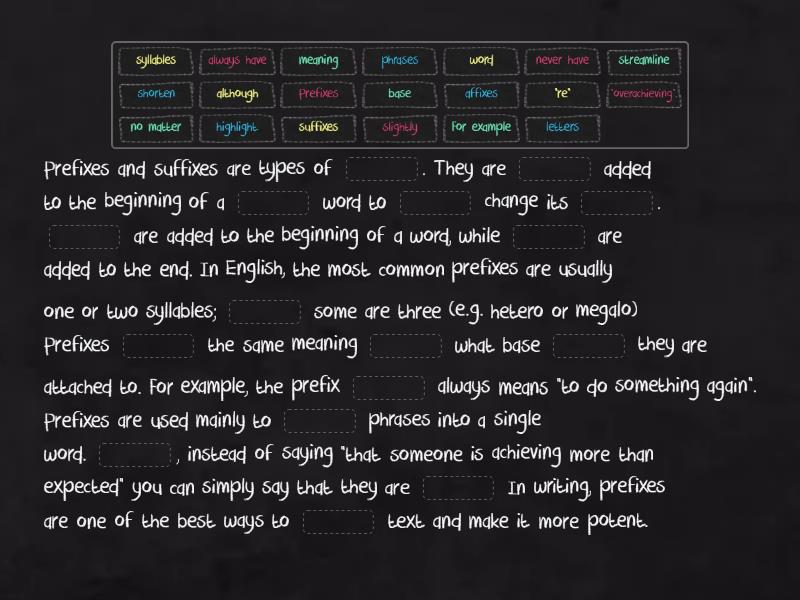 syllables always have meaning phrases word never have streamline
shorten although Prefixes base affixes "re" "overachieving".
no matter highlight suffixes slightly For example letters
Prefixes and suffixes are types of . They are added
to the beginning of a word to change its .
are added to the beginning of a word, while are
added to the end. In English, the most common prefixes are usually
one or two syllables; some are three (e.g. hetero or megalo)
Prefixes the same meaning what base they are
attached to. For example, the prefix always means "to do something again".
Prefixes are used mainly to phrases into a single
word. , instead of saying "that someone is achieving more than
expected" you can simply say that they are In writing, prefixes
are one of the best ways to text and make it more potent.